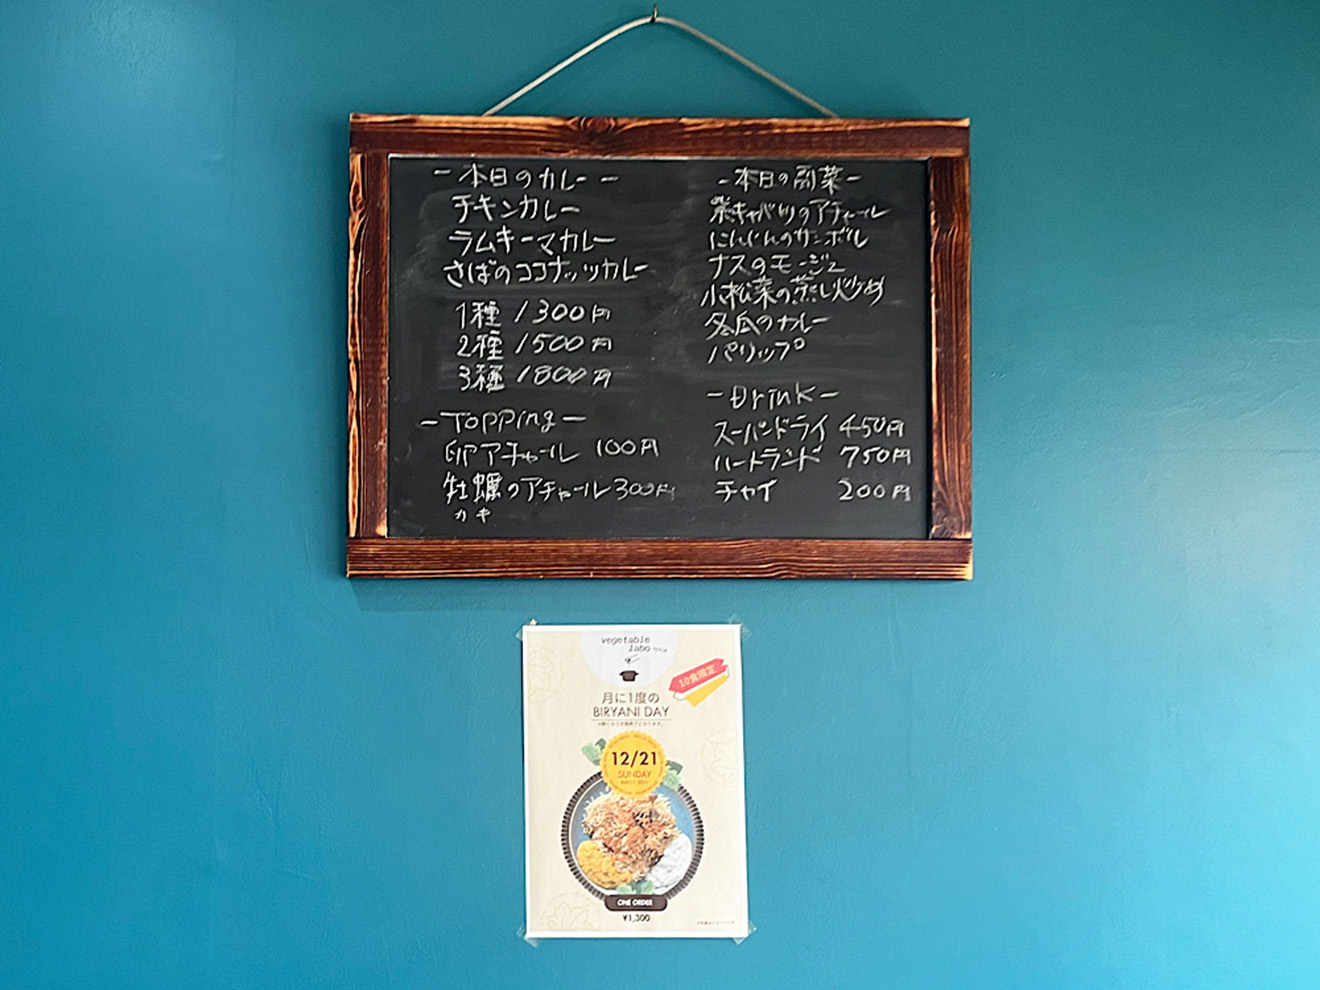 -本日のカレー-
チキンカレー
ラムキーマカレー
さばのココナッツカレー
1種 1300円
2種 1500円
3種 1800円
-Topping-
卵アチャール 100円
牡蠣のアチャール 300円
カキ
-本日の副菜-
紫キャベツのアチャール
にんじんのサンボル
ナスのモージュ
小松菜の蒸し炒め
冬瓜のカレー
パリップ
-Drink-
スーパードライ 450円
ハートランド 750円
チャイ 200円
vegetable
labo
10食限定
月に1度の
BIRYANI DAY
12/21
SUNDAY
ONE ORDER
¥1,300